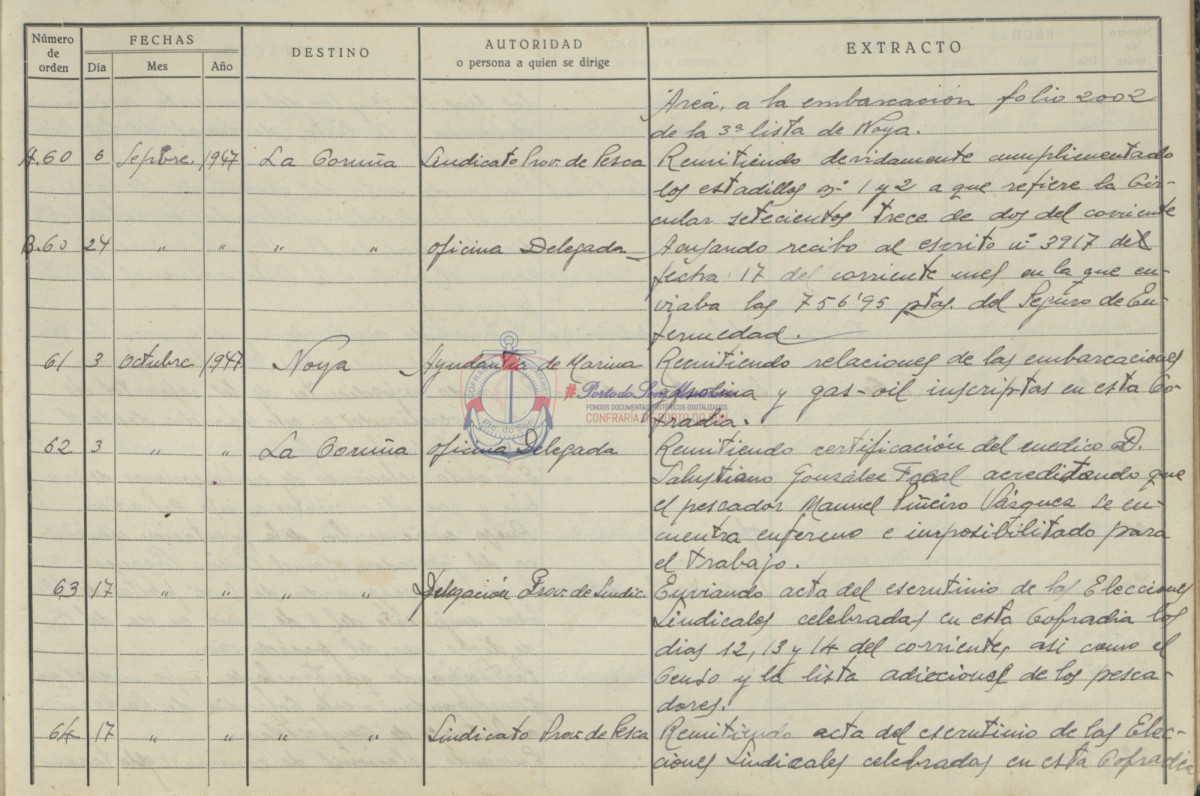 Número de orden
FECHAS
Día Mes Año
DESTINO
AUTORIDAD
o persona a quien se dirige
EXTRACTO
Area, a la embarcación folio 2002
de la 3ª lista de Noya.
A.60 6 Sepbre. 1947 La Coruña Sindicato Prov. de Pesca Remitiendo devidamente cumplimentado
los estadillos nº 1 y 2 a que refiere la Cir-
cular setecientos trece de dos del corriente
B.60 24 " " " " Oficina Delegada Acusando recibo al escrito nº 3917 del
fecha 17 del corriente mes en la que en-
viaba las 756'95 ptas. del Seguro de En-
fermedad.
61 3 Octubre 1947 Noya Ayudantía de Marina Remitiendo relaciones de las embarcaciones
gasolina y gas-oil inscriptas en esta Co-
fradia.
#Porto do Son
FONDOS DOCUMENTAIS HISTÓRICOS DIXITALIZADOS
CONFRARÍA DE PORTO DO SON
Pto. do Son
62 3 " " La Coruña Oficina Delegada Remitiendo certificación del medico D.
Salustiano González Facal acreditando que
el pescador Manuel Piñeiro Vázquez se en-
cuentra enfermo e imposibilitado para
el trabajo.
63 17 " " " " Delegación Prov. de Sindic. Enviando acta del escrutinio de las Elecciones
Sindicales celebradas en esta Cofradia los
dias 12, 13 y 14 del corriente, asi como el
Censo y la lista adiccional de los pesca-
dores.
64 17 " " " " Sindicato Prov. de Pesca Remitiendo acta del escrutinio de las Elec-
ciones Sindicales celebradas en esta Cofradia